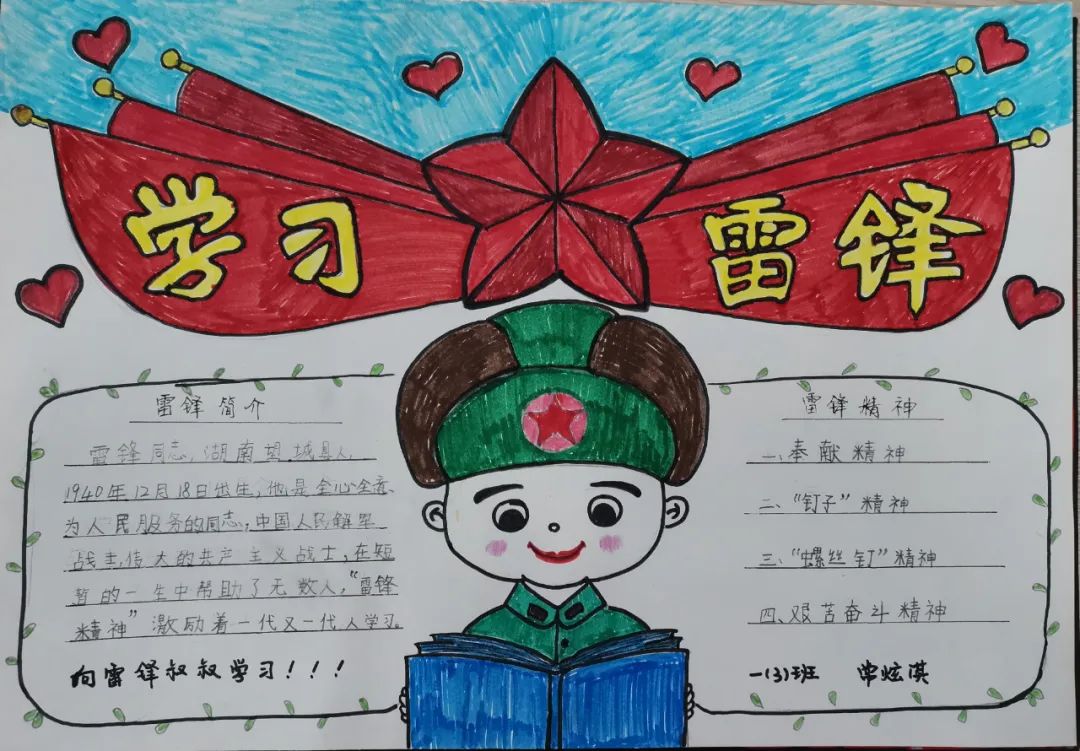 学习
雷锋
雷锋简介
雷锋同志,湖南望城县人,
1940年12月18日出生,他是全心全意
为人民服务的同志,中国人民解军
战主,伟大的共产主义战士,在短
暂的一生中帮助了无数人,“雷锋
精神”激励着一代又一代人学习。
向雷锋叔叔学习!!!
雷锋精神
一、奉献精神
二、“钉子”精神
三、“螺丝钉”精神
四、艰苦奋斗精神
一(3)班 常炫淇